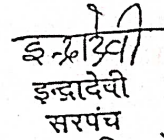 इन्द्रादेवी
इन्द्रादेवी
सरपंच